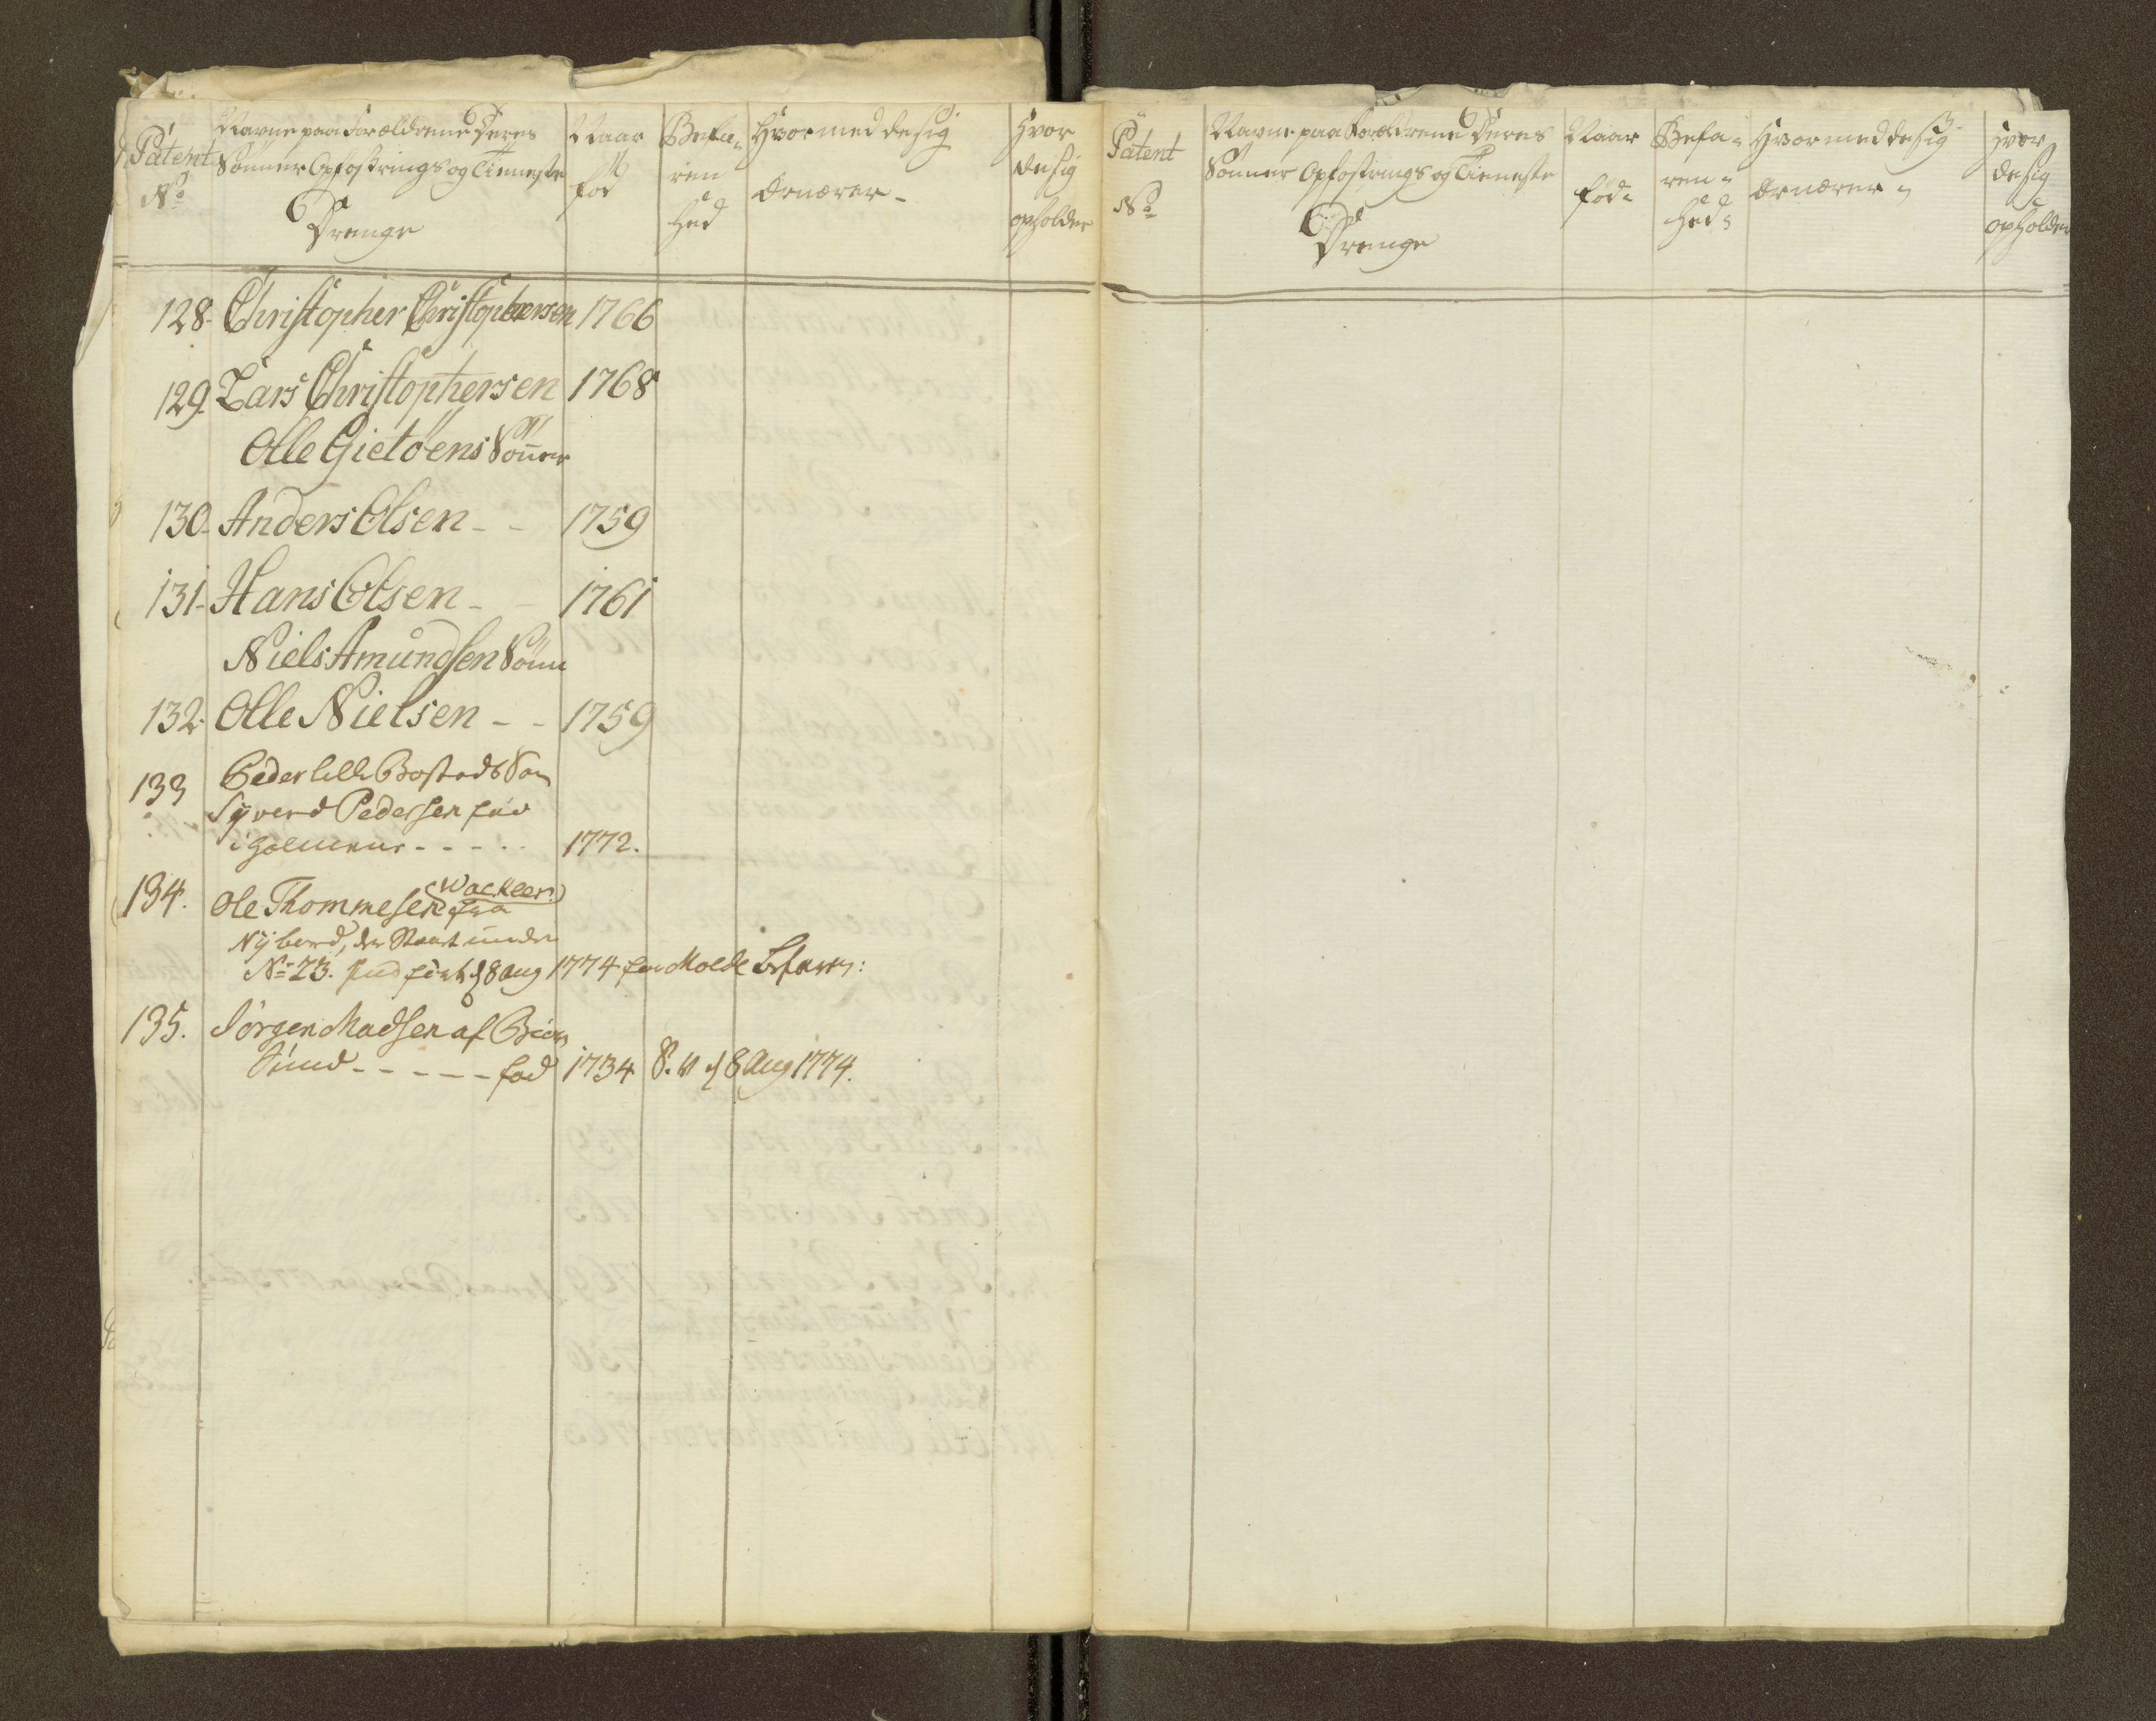 Patent
No
Navne paa Forældrene Deres
Sønner Opfostrings og Tieneste
Drenge
Naar
fød
Befa-
ren
hed
Hvormed de sig
Ernærer -
Hvor
de sig
opholder
128. Christopher Christophersen 1766
129. Lars Christophersen 1768
Olle Gietøens Sønner
130. Anders Olsen - - 1759
131. Hans Olsen - - 1761
Niels Amundsen Søn
132. Olle Nielsen - - 1759
133 Peder lille Bostads Søn
Syverd Pedersen fød
i - - - - - 1772.
134. Ole Thommesen fra
(Wackeer)
Nybord, der Staaer under
No 23. 8 Aug 1774 Molde
135. Jørgen Madsen af Biørn
Sund - - - - - fød 1734 8 Aug 1774.
Patent
No
Navne paa Forældrene Deres
Sønner Opfostrings og Tieneste
Drenge
Naar
fød
Befa-
ren
hed
Hvormed de sig
Ernærer
Hvor
de sig
opholder